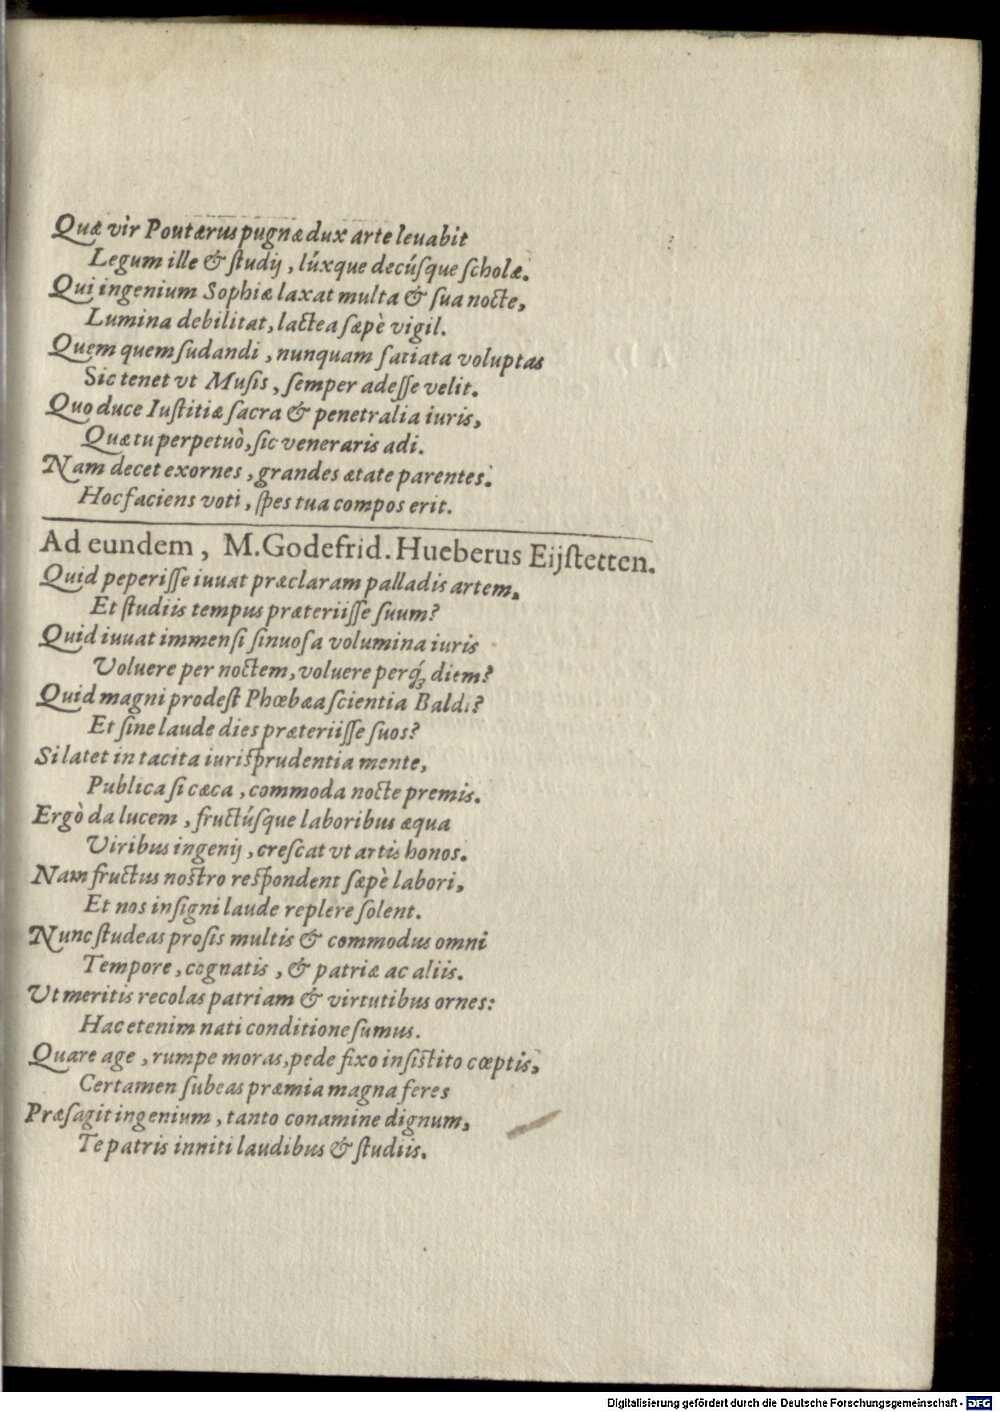 Quæ vir Poutærus pugnæ dux arte leuabit
Legum ille & ſtudij, lúxque decúſque ſcholæ.
Qui ingenium Sophiæ laxat multa & ſua nocte,
Lumina debilitat, lactea ſæpè vigil.
Quem quem ſudandi, nunquam ſatiata voluptas
Sic tenet vt Muſis, ſemper adeſſe velit.
Quo duce Iuſtitiæ ſacra & penetralia iuris,
Quæ tu perpetuò, ſic veneraris adi.
Nam decet exornes, grandes ætate parentes.
Hoc faciens voti, ſpes tua compos erit.
Ad eundem, M. Godefrid. Hueberus Eijſtetten.
Quid peperiſſe iuuat præclaram palladis artem,
Et ſtudiis tempus præteriiſſe ſuum?
Quid iuuat immenſi ſinuoſa volumina iuris
Voluere per noctem, voluere perq́ꝫ diem?
Quid magni prodeſt Phœbæa ſcientia Baldi?
Et ſine laude dies præteriiſſe ſuos?
Si latet in tacita iuriſprudentia mente,
Publica ſi cæca, commoda nocte premis.
Ergò da lucem, fructúſque laboribus æqua
Viribus ingenij, creſcat vt artis honos.
Nam fructus noſtro reſpondent ſæpè labori,
Et nos inſigni laude replere ſolent.
Nunc ſtudeas proſis multis & commodus omni
Tempore, cognatis, & patriæ ac aliis.
Ut meritis recolas patriam & virtutibus ornes:
Hac etenim nati conditione ſumus.
Quare age, rumpe moras, pede fixo inſiſtito cœptis,
Certamen ſubeas præmia magna feres
Præſagit ingenium, tanto conamine dignum,
Te patris inniti laudibus & ſtudiis.
Digitalisierung gefördert durch die Deutsche Forschungsgemeinschaft - DFG